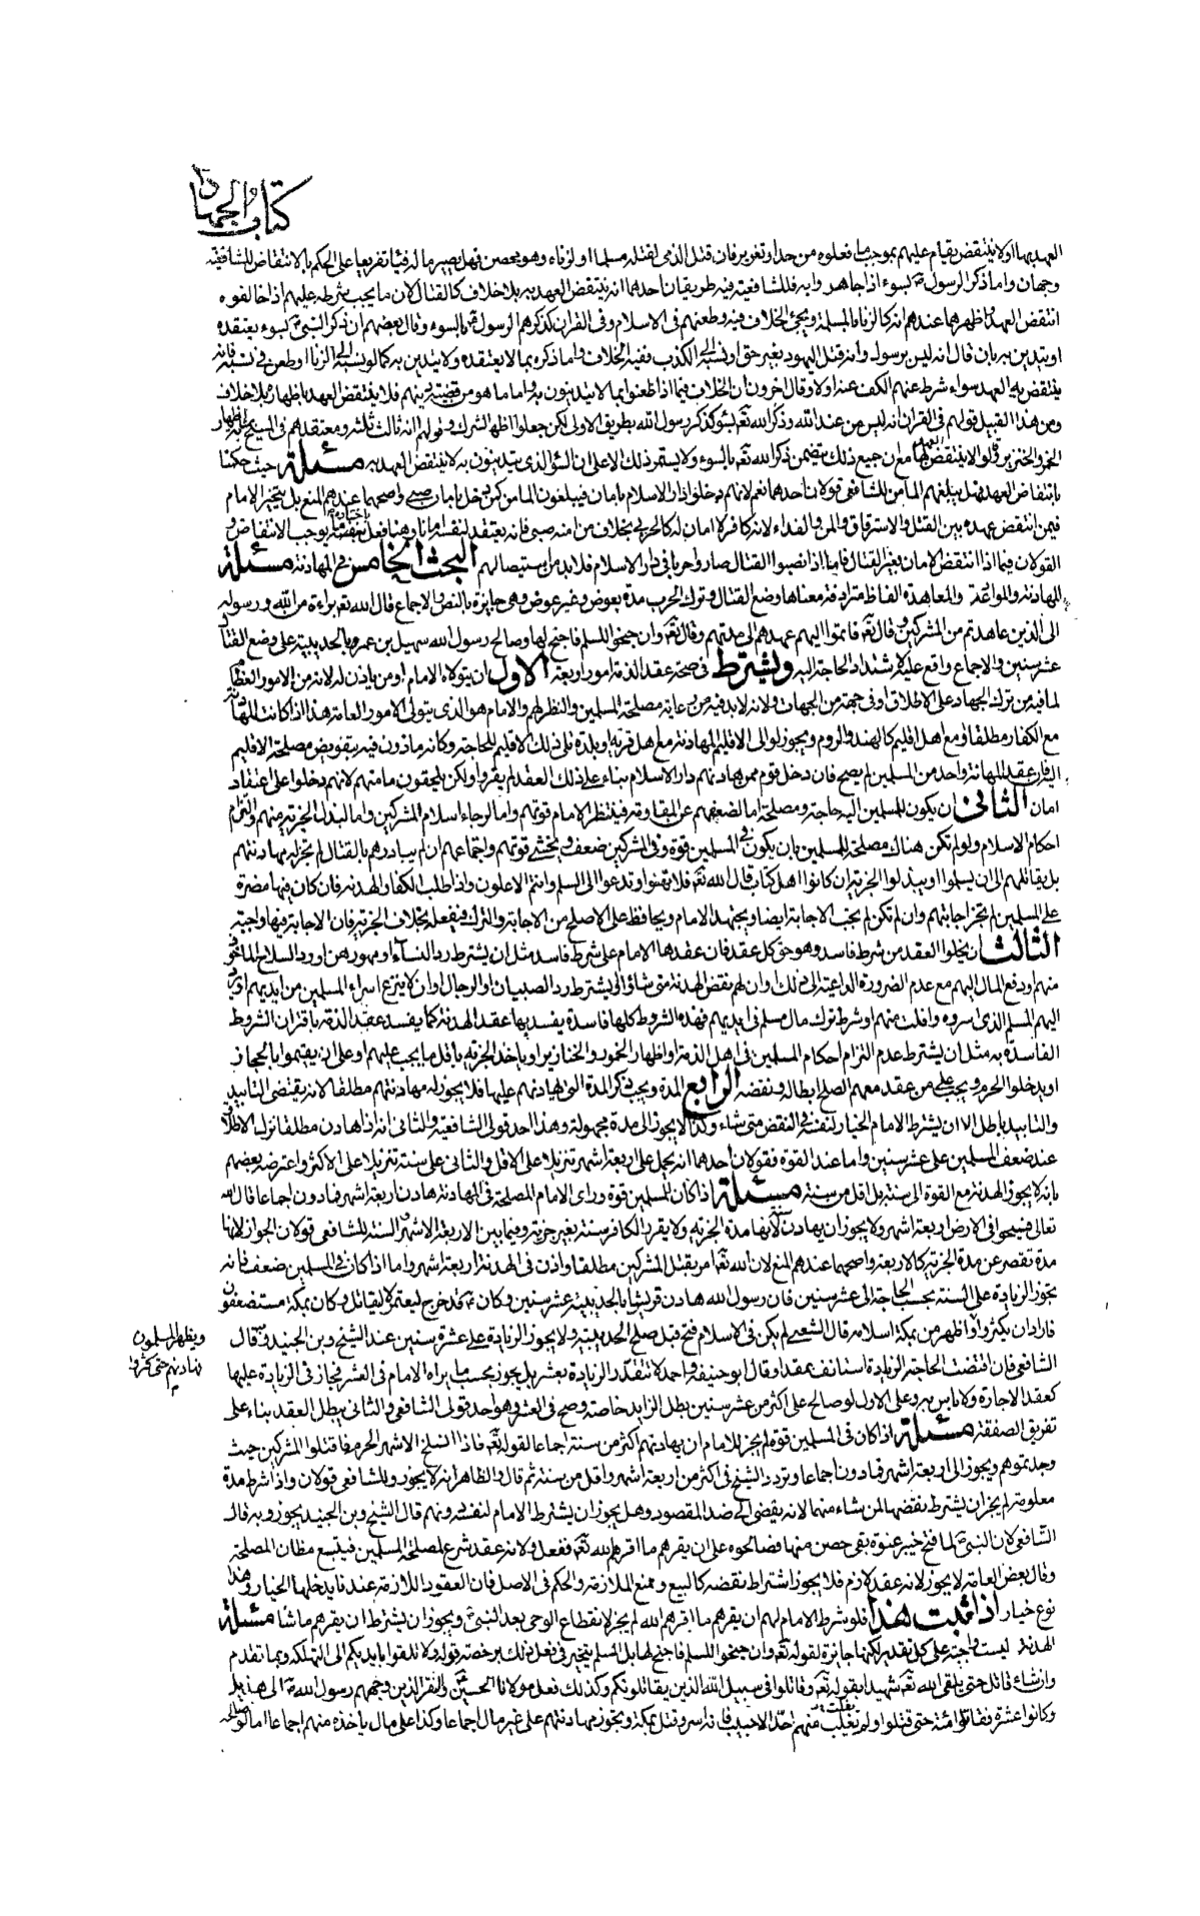 كتاب الجهاد
العهد بها اولا ينتقض يقام عليهم بموجب ما فعلوه من حد او تعزير فان قتل الذمى لقتله مسلما او لزناه وهو محصن فهل يصير ماله فيئا تفريعا على الحكم بالانتقاض للشافعية
وجهان واما ذكر الرسول ص كبسوء اذا جاهروا به فللشافعية فيه طريقان احدهما انه ينتقض العهد به بلا خلاف كالقتال لان ما يجب شرطه عليهم اذا خالفوه
انتقض العهد واظهرها عندهم انه كالزنا بالمسلمة ويجئ الخلاف فيه وطعنهم فى الاسلام وفى القران كذكرهم الرسول ص بالسوء وقال بعضهم ان ذكر النبى ص كبسوء يعتقده
او يتدين به بان قال انه ليس برسول وانه قتل اليهود بغير حق او نسبه الى الكذب ففيه الخلاف واما ذكره بما لا يعتقده ولا يتدين به كما لو نسبه الى الزنا او طعن فى نسبه فانه
ينتقض به العهد سواء شرط عنهم الكف عنه اولا وقال اخرون ان الخلاف فيما اذا طعنوا بما لا يتدينون به واما ما هو من قضية دينهم فلا ينتقض العهد باظهاره بلا خلاف
ومن هذا القبيل قولهم فى القران انه ليس من عند الله وذكر الله تعه بسوء كذكر رسول الله بطريق الاولى لكن جعلوا اظهار الشرك وقولهم انه ثالث ثلثة ومعتقدهم فى المسيح كاظهار
الخمر والخنزير وقالوا لا ينتقض العهد بها مع ان جميع ذلك يتضمن ذكر الله تعه بالسوء ولا يستمر ذلك الا على ان السوء الذى يتدينون به لا ينتقض العهد به مسئلة حيث حكمنا
بانتقاض العهد فهل يبلغهم المامن للشافعى قولان احدهما نعم لانهم دخلوا دار الاسلام بامان فيبلغون المامن كمن دخل بامان صبى واصحهما عندهم المنع بل يتخير الامام
فيمن انتقض عهده بين القتل والاسترقاق والمن والفداء لانه كافر لا امان له كالحربى بخلاف من امنه صبى فانه يعتقد لنفسه امانا وهنا فعل باختياره ما يوجب الانتقاض و
القولان فيما اذا انتقض الامان بغير القتال فاما اذا نصبوا القتال صاروا حربا فى دار الاسلام فلا بد من استيصالهم البحث الخامس فى المهادنة مسئلة
المهادنة والموادعة والمعاهدة الفاظ مترادفة معناها وضع القتال وترك الحرب مدة بعوض وغير عوض وهى جايزة بالنص والاجماع قال الله تعه براءة من الله ورسوله
الى الذين عاهدتم من المشركين وقال تعه فاتموا اليهم عهدهم الى مدتهم وقال تعه وان جنحوا للسلم فاجنح لها وصالح رسول الله سهيل بن عمرو بالحديبية على وضع القتال
عشر سنين والاجماع واقع عليه لاشتداد الحاجة اليه ويشترط فى صحة عقد الذمة امور اربعة الاول ان يتولاه الامام او من ياذن له لانه من الامور العظام
لما فيه من ترك الجهاد على الاطلاق او فى جهة من الجهات ولانه لا بد فيه من رعاية مصلحة المسلمين والنظر لهم والامام هو الذى يتولى الامور العامة هذا اذا كانت المهادنة
مع الكفار مطلقا او مع اهل اقليم كالهند والروم ويجوز لوالى الاقليم المهادنة مع اهل قرية او بلدة تلى ذلك الاقليم للحاجة وكانه ماذون فيه بتفويض مصلحة الاقليم
اليه فان عقد المهادنة واحد من المسلمين لم يصح فان دخل قوم ممن هادنهم دار الاسلام بناء على ذلك العقد لم يقروا ولكن يلحقون مامنهم لانهم دخلوا على اعتقاد
امان الثانى ان يكون للمسلمين اليه حاجة ومصلحة اما لضعفهم عن المقاومة فينتظر الامام قوتهم واما لرجاء اسلام المشركين واما لبذل الجزية منهم والتزام
احكام الاسلام ولو لم تكن هناك مصلحة للمسلمين بان يكون فى المسلمين قوة وفى المشركين ضعف ويخشى قوتهم واجتماعهم ان لم يبادرهم بالقتال لم يجز له مهادنتهم
بل يقاتلهم الى ان يسلموا او يبذلوا الجزية ان كانوا اهل كتاب قال الله تعه فلا تهنوا وتدعوا الى السلم وانتم الاعلون واذا طلب الكفار الهدنة فان كان فيها مضرة
على المسلمين لم يجز اجابتهم وان لم تكن لم يجب الاجابة ايضا ويجتهد الامام ويحافظ على الاصلح من الاجابة والترك فيفعله بخلاف الجزية فان الاجابة فيها واجبة
الثالث ان يخلوا العقد من شرط فاسد وهو حق كل عقد فان عقدها الامام على شرط فاسد مثل ان يشترط رد النساء او مهورهن او رد السلاح الماخوذ
منهم او دفع المال اليهم مع عدم الضرورة الداعية الى ذلك او ان لهم نقض الهدنة متى شاؤا او يشترط رد الصبيان او الرجال او ان لا ينزع اسراء المسلمين من ايديهم او يرد
اليهم المسلم الذى اسروه وافلت منهم او شرط ترك مال مسلم فى ايديهم فهذه الشروط كلها فاسدة يفسد بها عقد الهدنة كما يفسد عقد الذمة باقتران الشروط
الفاسدة به مثل ان يشترط عدم التزام احكام المسلمين فى اهل الذمة او اظهار الخمور والخنازير او ياخذ الجزية باقل ما يجب عليهم او على ان يقيموا بالحجاز
او يدخلوا الحرم ويجب على من عقد معهم الصلح ابطاله ونقضه الرابع المدة ويجب ذكر المدة التى يهادنهم عليها فلا يجوز له مهادنتهم مطلقا لانه يقتضى التابيد
والتابيد باطل الا ان يشترط الامام الخيار لنفسه فى النقض متى شاء وكذا لا يجوز الى مدة مجهولة وهذا احد قولى الشافعية والثانى انه اذا هادن مطلقا نزل الاطلاق
عند ضعف المسلمين على عشر سنين واما عند القوة فقولان احدهما انه يحمل على اربعة اشهر تنزيلا على الاقل والثانى على سنة تنزيلا على الاكثر واعترضه بعضهم
بانه لا يجوز الهدنة مع القوة الى سنة بل اقل من سنة مسئلة اذا كان للمسلمين قوة وراى الامام المصلحة فى المهادنة هادن اربعة اشهر فما دون اجماعا قال الله
تعالى فسيحوا فى الارض اربعة اشهر ولا يجوز ان يهادن سنة لانها مدة الجزية ولا يقر الكافر سنة بغير جزية وفيما بين الاربعة الاشهر والسنة للشافعى قولان الجواز لانها
مدة تقصر عن مدة الجزية كالاربعة واصحهما عندهم المنع لان الله تعه امر بقتل المشركين مطلقا واذن فى الهدنة اربعة اشهر واما اذا كان فى المسلمين ضعف فانه
يجوز الزيادة على السنة بحسب الحاجة الى عشر سنين فان رسول الله هادن قريشا بالحديبية عشر سنين وكان ص قد خرج ليعتمر لا ليقاتل وكان بمكة مستضعفون
فاراد ان يكثروا واظهر من بمكة اسلامه قال الشعبى لم يكن فى الاسلام فتح قبل صلح الحديبية ولا يجوز الزيادة على عشرة سنين عند الشيخ وبن الجنيد وبه قال
ويظهر المسلمون
فهادنهم حتى كثروا
الشافعى فان اقتضت الحاجة الزيادة استانف عقدا وقال ابو حنيفة واحمد لا تتقدر الزيادة بعشر بل يجوز بحسب ما يراه الامام فى العشر فجاز فى الزيادة عليها
كعقد الاجارة ولا باس به وعلى الاول لو صالح على اكثر من عشر سنين بطل الزايد خاصة وصح فى العشر وهو احد قولى الشافعى والثانى يبطل العقد بناء على
تفريق الصفقة مسئلة اذا كان فى المسلمين قوة لم يجز للامام ان يهادنهم اكثر من سنة اجماعا لقوله تعه فاذا انسلخ الاشهر الحرم فاقتلوا المشركين حيث
وجدتموهم ويجوز الى اربعة اشهر فما دون اجماعا وتردد الشيخ فى اكثر من اربعة اشهر واقل من سنة ثم قال والظاهر انه لا يجوز وللشافعى قولان واذا شرط مدة
معلومة لم يجز ان يشترط نقضها لمن شاء منهما لانه يفضى الى ضد المقصود وهل يجوز ان يشترط الامام لنفسه دونهم قال الشيخ وبن الجنيد يجوز وبه قال
الشافعى لان النبى ص لما فتح خيبر عنوة بقى حصن منها فصالحوه على ان يقرهم ما اقرهم الله تعه ففعل ولانه عقد شرع لمصلحة المسلمين فيتبع مظان المصلحة
وقال بعض العامة لا يجوز لانه عقد لازم فلا يجوز اشتراط نقضه كالبيع ونمنع الملازمة والحكم فى الاصل فان العقود اللازمة عندنا يدخلها الخيار وهذا
نوع خيار اذا ثبت هذا فلو شرط الامام لهم ان يقرهم ما اقرهم الله لم يجز لانقطاع الوحى بعد النبى ص ويجوز ان يشترط ان يقرهم ما شاء مسئلة
الهدنة ليست واجبة على كل تقدير لكنها جايزة لقوله تعه وان جنحوا للسلم فاجنح لها بل المسلم يتخير فى فعل ذلك برخصة قوله ولا تلقوا بايديكم الى التهلكة وبما تقدم
وان شاء قاتل حتى يلقى الله تعه شهيدا بقوله تعه وقاتلوا فى سبيل الله الذين يقاتلونكم وكذلك فعل مولانا الحسين ع والنفر الذين وجههم رسول الله ص الى هذيل
وكانوا عشرة فقاتلوا مئة حتى قتلوا ولم يفلت منهم احد الا خبيب فانه اسر وقتل بمكة ويجوز مهادنتهم على غير مال اجماعا وكذا على مال ياخذه منهم اجماعا اما لو صالحهم